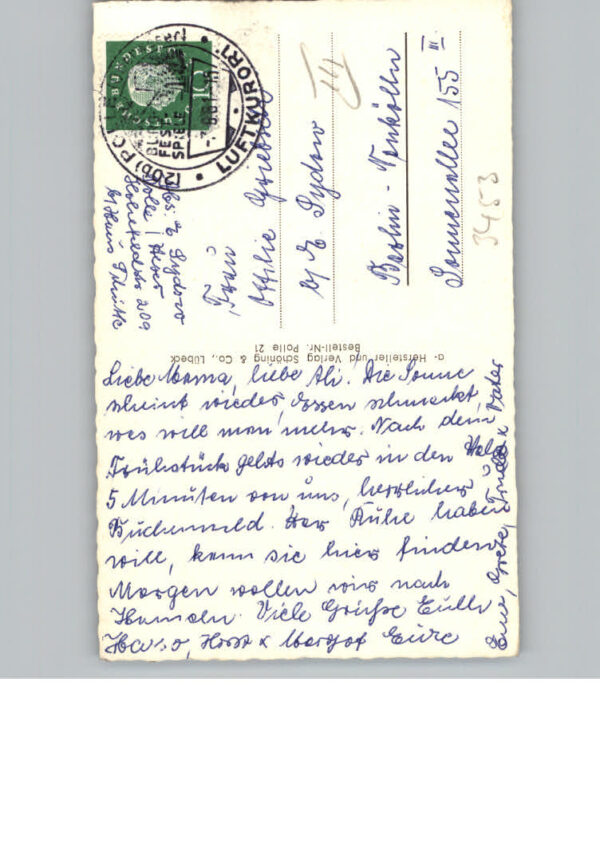 Liebe Mama, liebe Ali! Die Sonne
scheint wieder, Essen schmeckt,
was will man mehr. Nach dem
Frühstück gehts wieder in den Wald
5 Minuten von uns, herrlicher
Buchenwald. Wer Ruhe haben
will, kann sie hier finden.
Morgen wollen wir nach
Hameln. Viele Grüße Eulli
Horst & Margot Eure
Grete, & Vater
a- Hersteller und Verlag Schöning & Co., Lübeck
Bestell-Nr. Polle 21
Abs. E. Sydow
Polle / Weser
209
b/ Hans
Frau
Ottilie
b/ E. Sydow
Berlin - Neukölln
Sonnenallee 155 III.
3453
DEUTSCHE BUNDESPOST
10
(20b) POLLE
BURG
FEST
SPIELE
LUFTKURORT